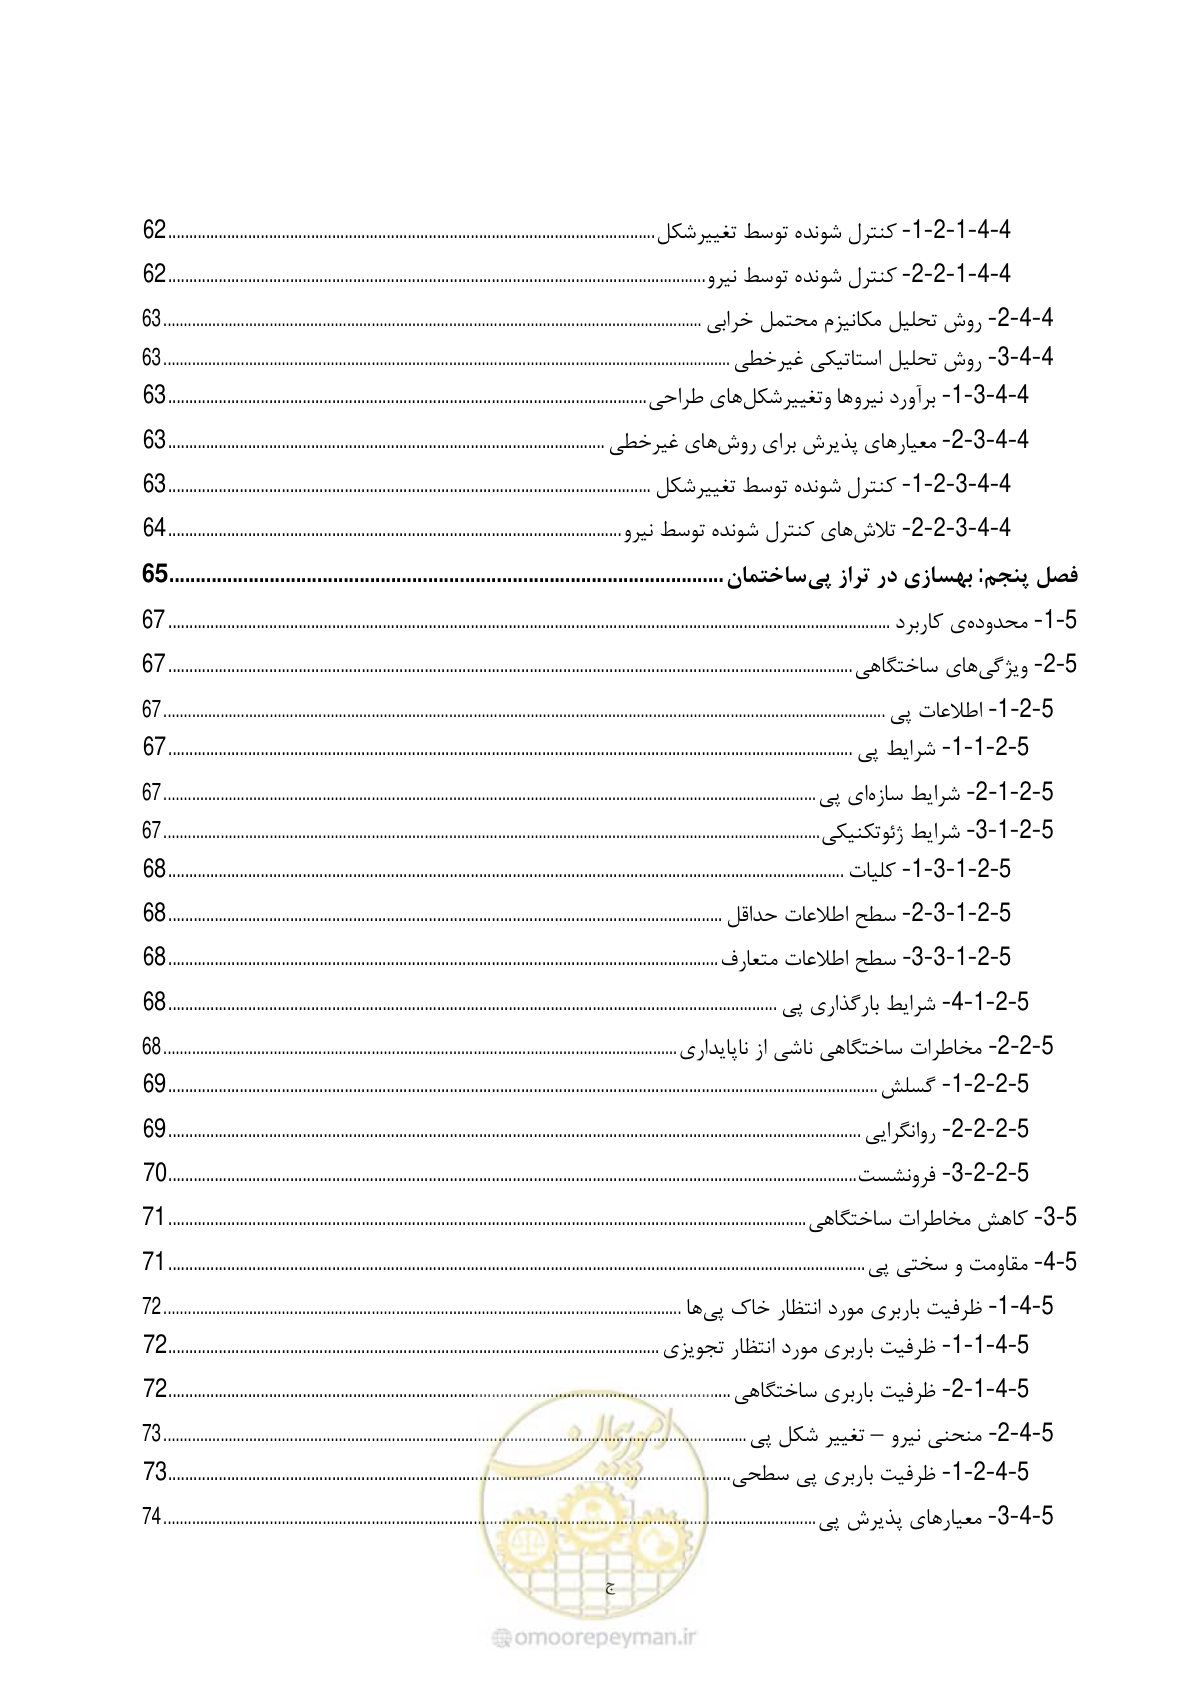 4-4-1-2-1- کنترل شونده توسط تغییرشکل ........ 62
4-4-1-2-2- کنترل شونده توسط نیرو ........ 62
4-4-2- روش تحلیل مکانیزم محتمل خرابی ........ 63
4-4-3- روش تحلیل استاتیکی غیرخطی ........ 63
4-4-3-1- برآورد نیروها وتغییرشکل‌های طراحی ........ 63
4-4-3-2- معیارهای پذیرش برای روش‌های غیرخطی ........ 63
4-4-3-2-1- کنترل شونده توسط تغییرشکل ........ 63
4-4-3-2-2- تلاش‌های کنترل شونده توسط نیرو ........ 64
فصل پنجم: بهسازی در تراز پی‌ساختمان ........ 65
5-1- محدوده‌ی کاربرد ........ 67
5-2- ویژگی‌های ساختگاهی ........ 67
5-2-1- اطلاعات پی ........ 67
5-2-1-1- شرایط پی ........ 67
5-2-1-2- شرایط سازه‌ای پی ........ 67
5-2-1-3- شرایط ژئوتکنیکی ........ 67
5-2-1-3-1- کلیات ........ 68
5-2-1-3-2- سطح اطلاعات حداقل ........ 68
5-2-1-3-3- سطح اطلاعات متعارف ........ 68
5-2-1-4- شرایط بارگذاری پی ........ 68
5-2-2- مخاطرات ساختگاهی ناشی از ناپایداری ........ 68
5-2-2-1- گسلش ........ 69
5-2-2-2- روانگرایی ........ 69
5-2-2-3- فرونشست ........ 70
5-3- کاهش مخاطرات ساختگاهی ........ 71
5-4- مقاومت و سختی پی ........ 71
5-4-1- ظرفیت باربری مورد انتظار خاک پی‌ها ........ 72
5-4-1-1- ظرفیت باربری مورد انتظار تجویزی ........ 72
5-4-1-2- ظرفیت باربری ساختگاهی ........ 72
5-4-2- منحنی نیرو – تغییر شکل پی ........ 73
5-4-2-1- ظرفیت باربری پی سطحی ........ 73
5-4-3- معیارهای پذیرش پی ........ 74
امور پیمان
ج
@omoorepeyman.ir